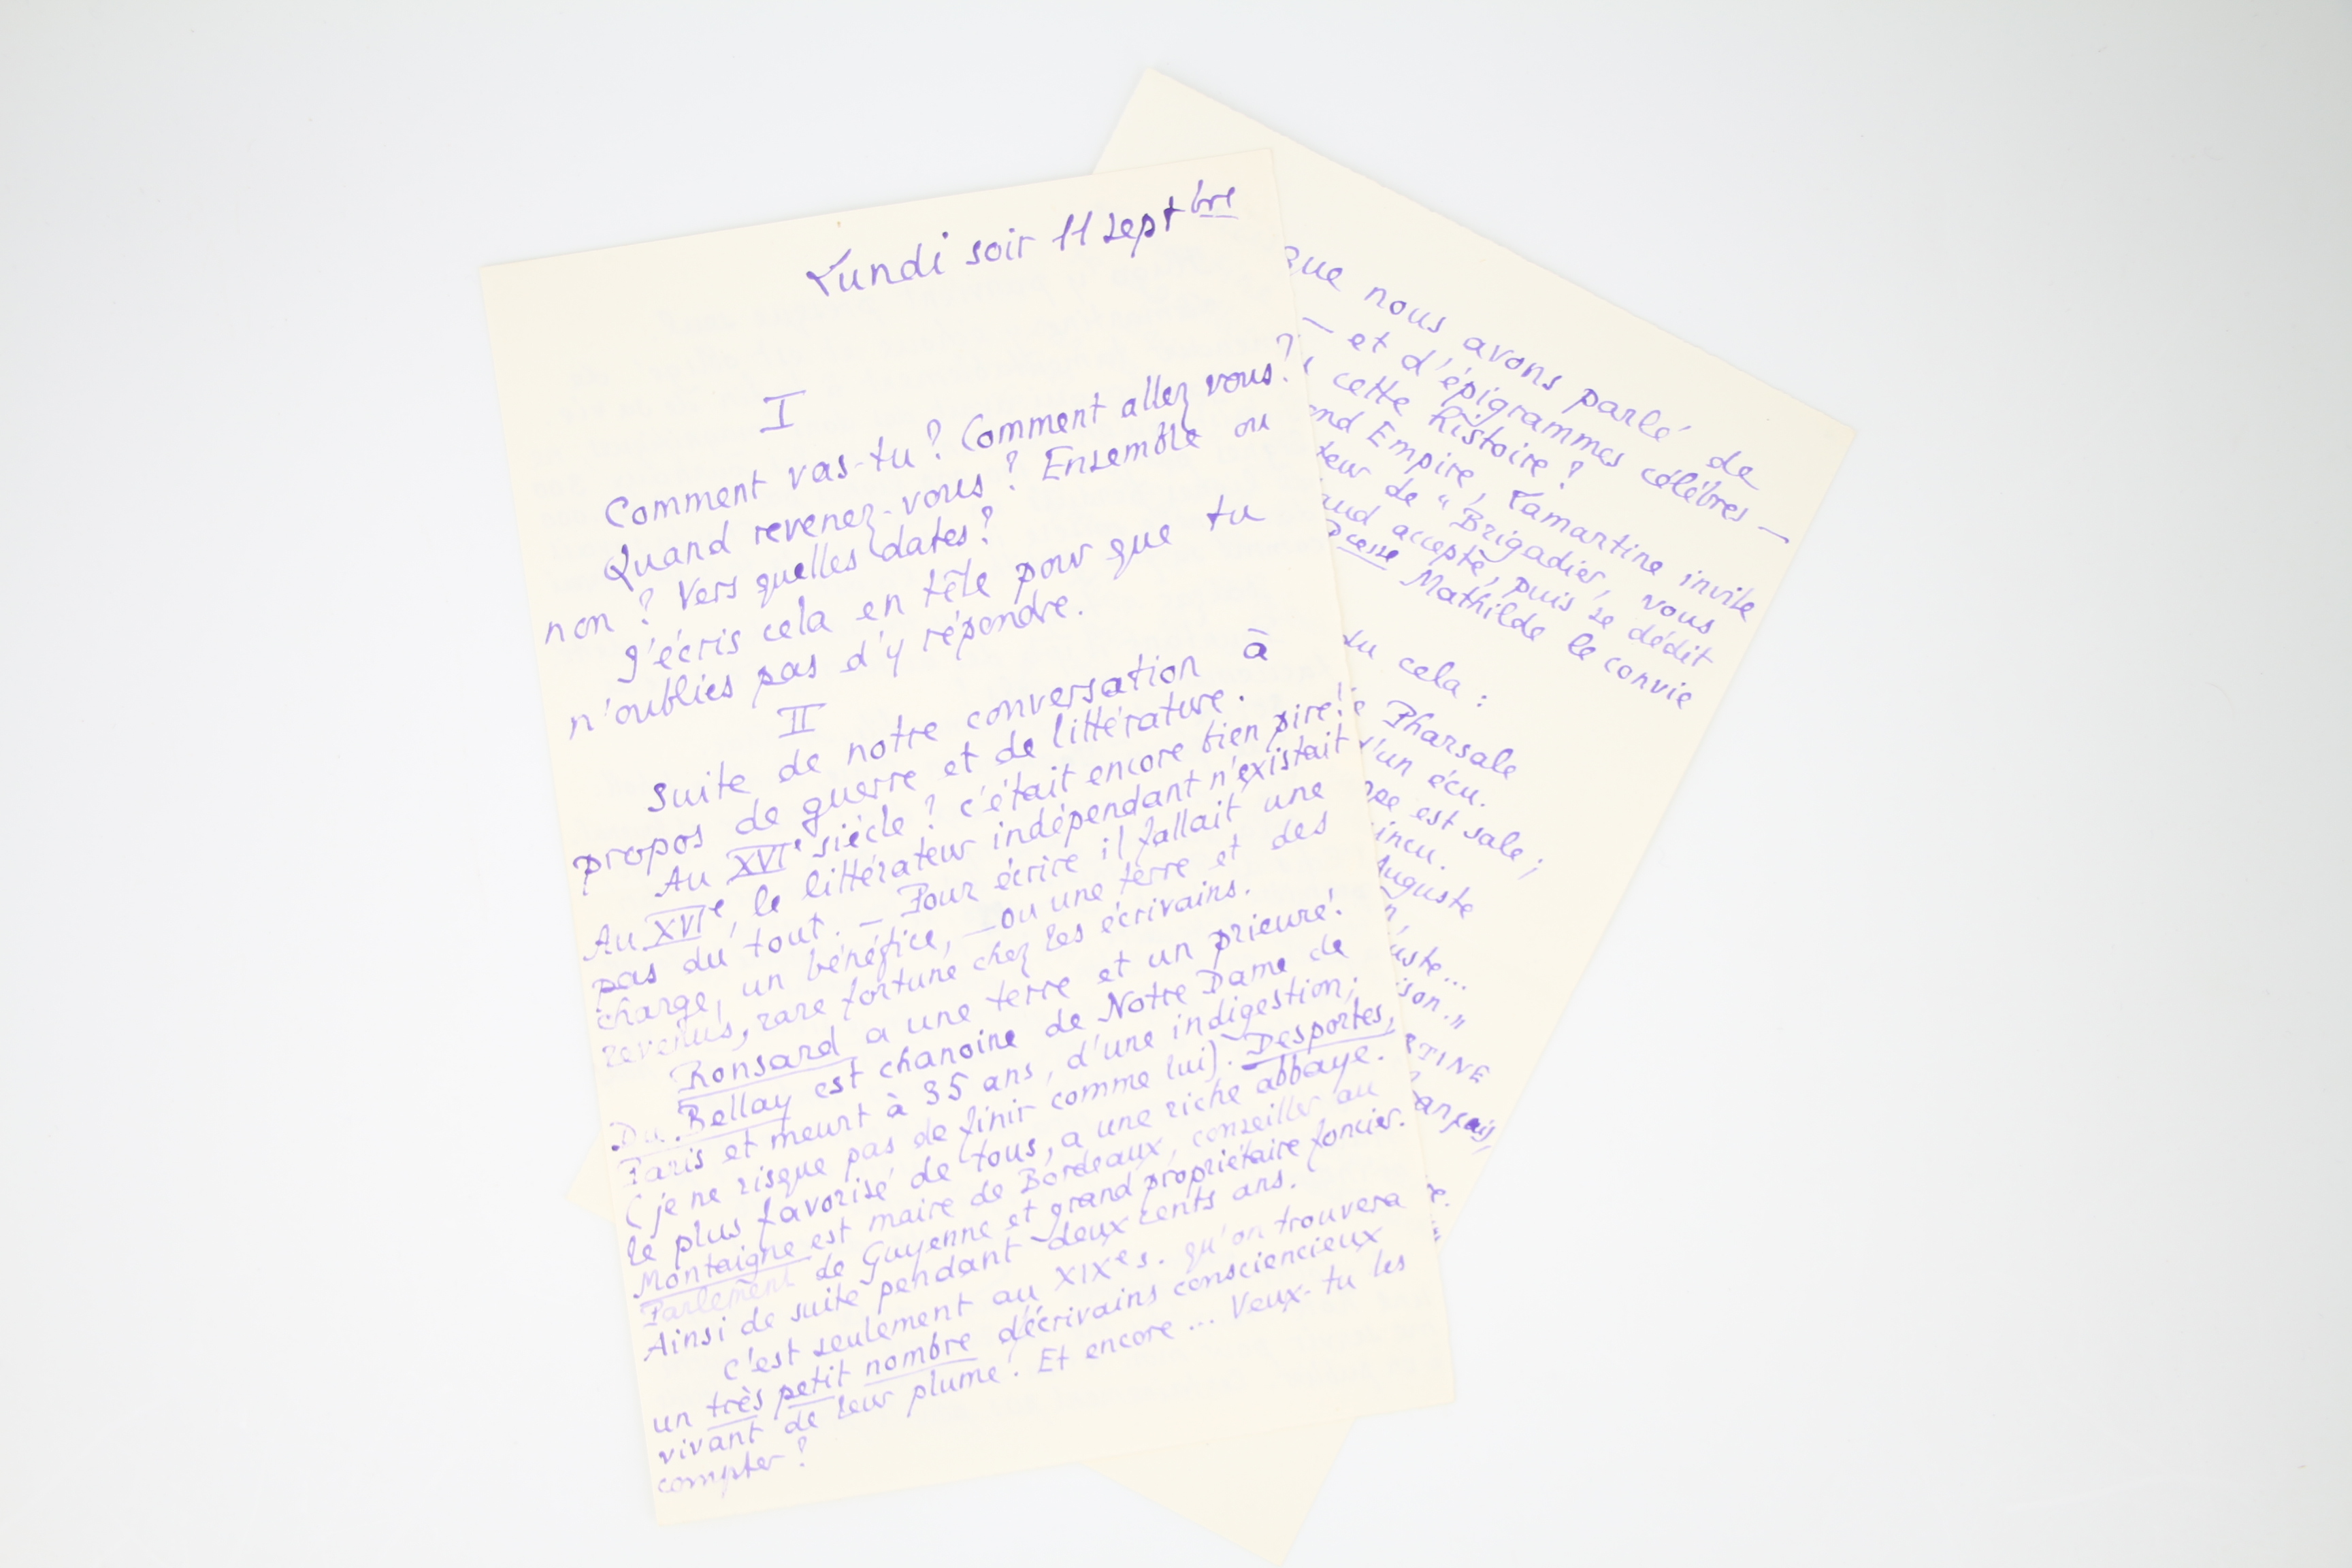 Lundi soir 11 septbre
I
Comment vas-tu? Comment allez vous?
Quand revenez-vous? Ensemble ou
non? Vers quelles dates?
J'écris cela en tête pour que tu
n'oublies pas d'y répondre.
II
Suite de notre conversation à
propos de guerre et de littérature.
Au XVIe siècle? c'était encore bien pire!
Au XVIe, le littérateur indépendant n'existait
pas du tout. — Pour écrire il fallait une
charge, un bénéfice, — ou une terre et des
revenus, rare fortune chez les écrivains.
Ronsard a une terre et un prieuré.
Du Bellay est chanoine de Notre Dame de
Paris et meurt à 35 ans, d'une indigestion;
(je ne risque pas de finir comme lui). Desportes,
le plus favorisé de tous, a une riche abbaye.
Montaigne est maire de Bordeaux, conseiller au
Parlement de Guyenne et grand propriétaire foncier.
Ainsi de suite pendant deux cents ans.
C'est seulement au XIXe s. qu'on trouvera
un très petit nombre d'écrivains consciencieux
vivant de leur plume. Et encore... Veux-tu les
compter?
que nous avons parlé de
— et d'épigrammes célèbres —
cette histoire?
Empire, Lamartine invite
de "Brigadier, vous
accepté, puis se dédit
Pcesse Mathilde le convie
cela:
Pharsale
d'un écu.
est sale;
Auguste